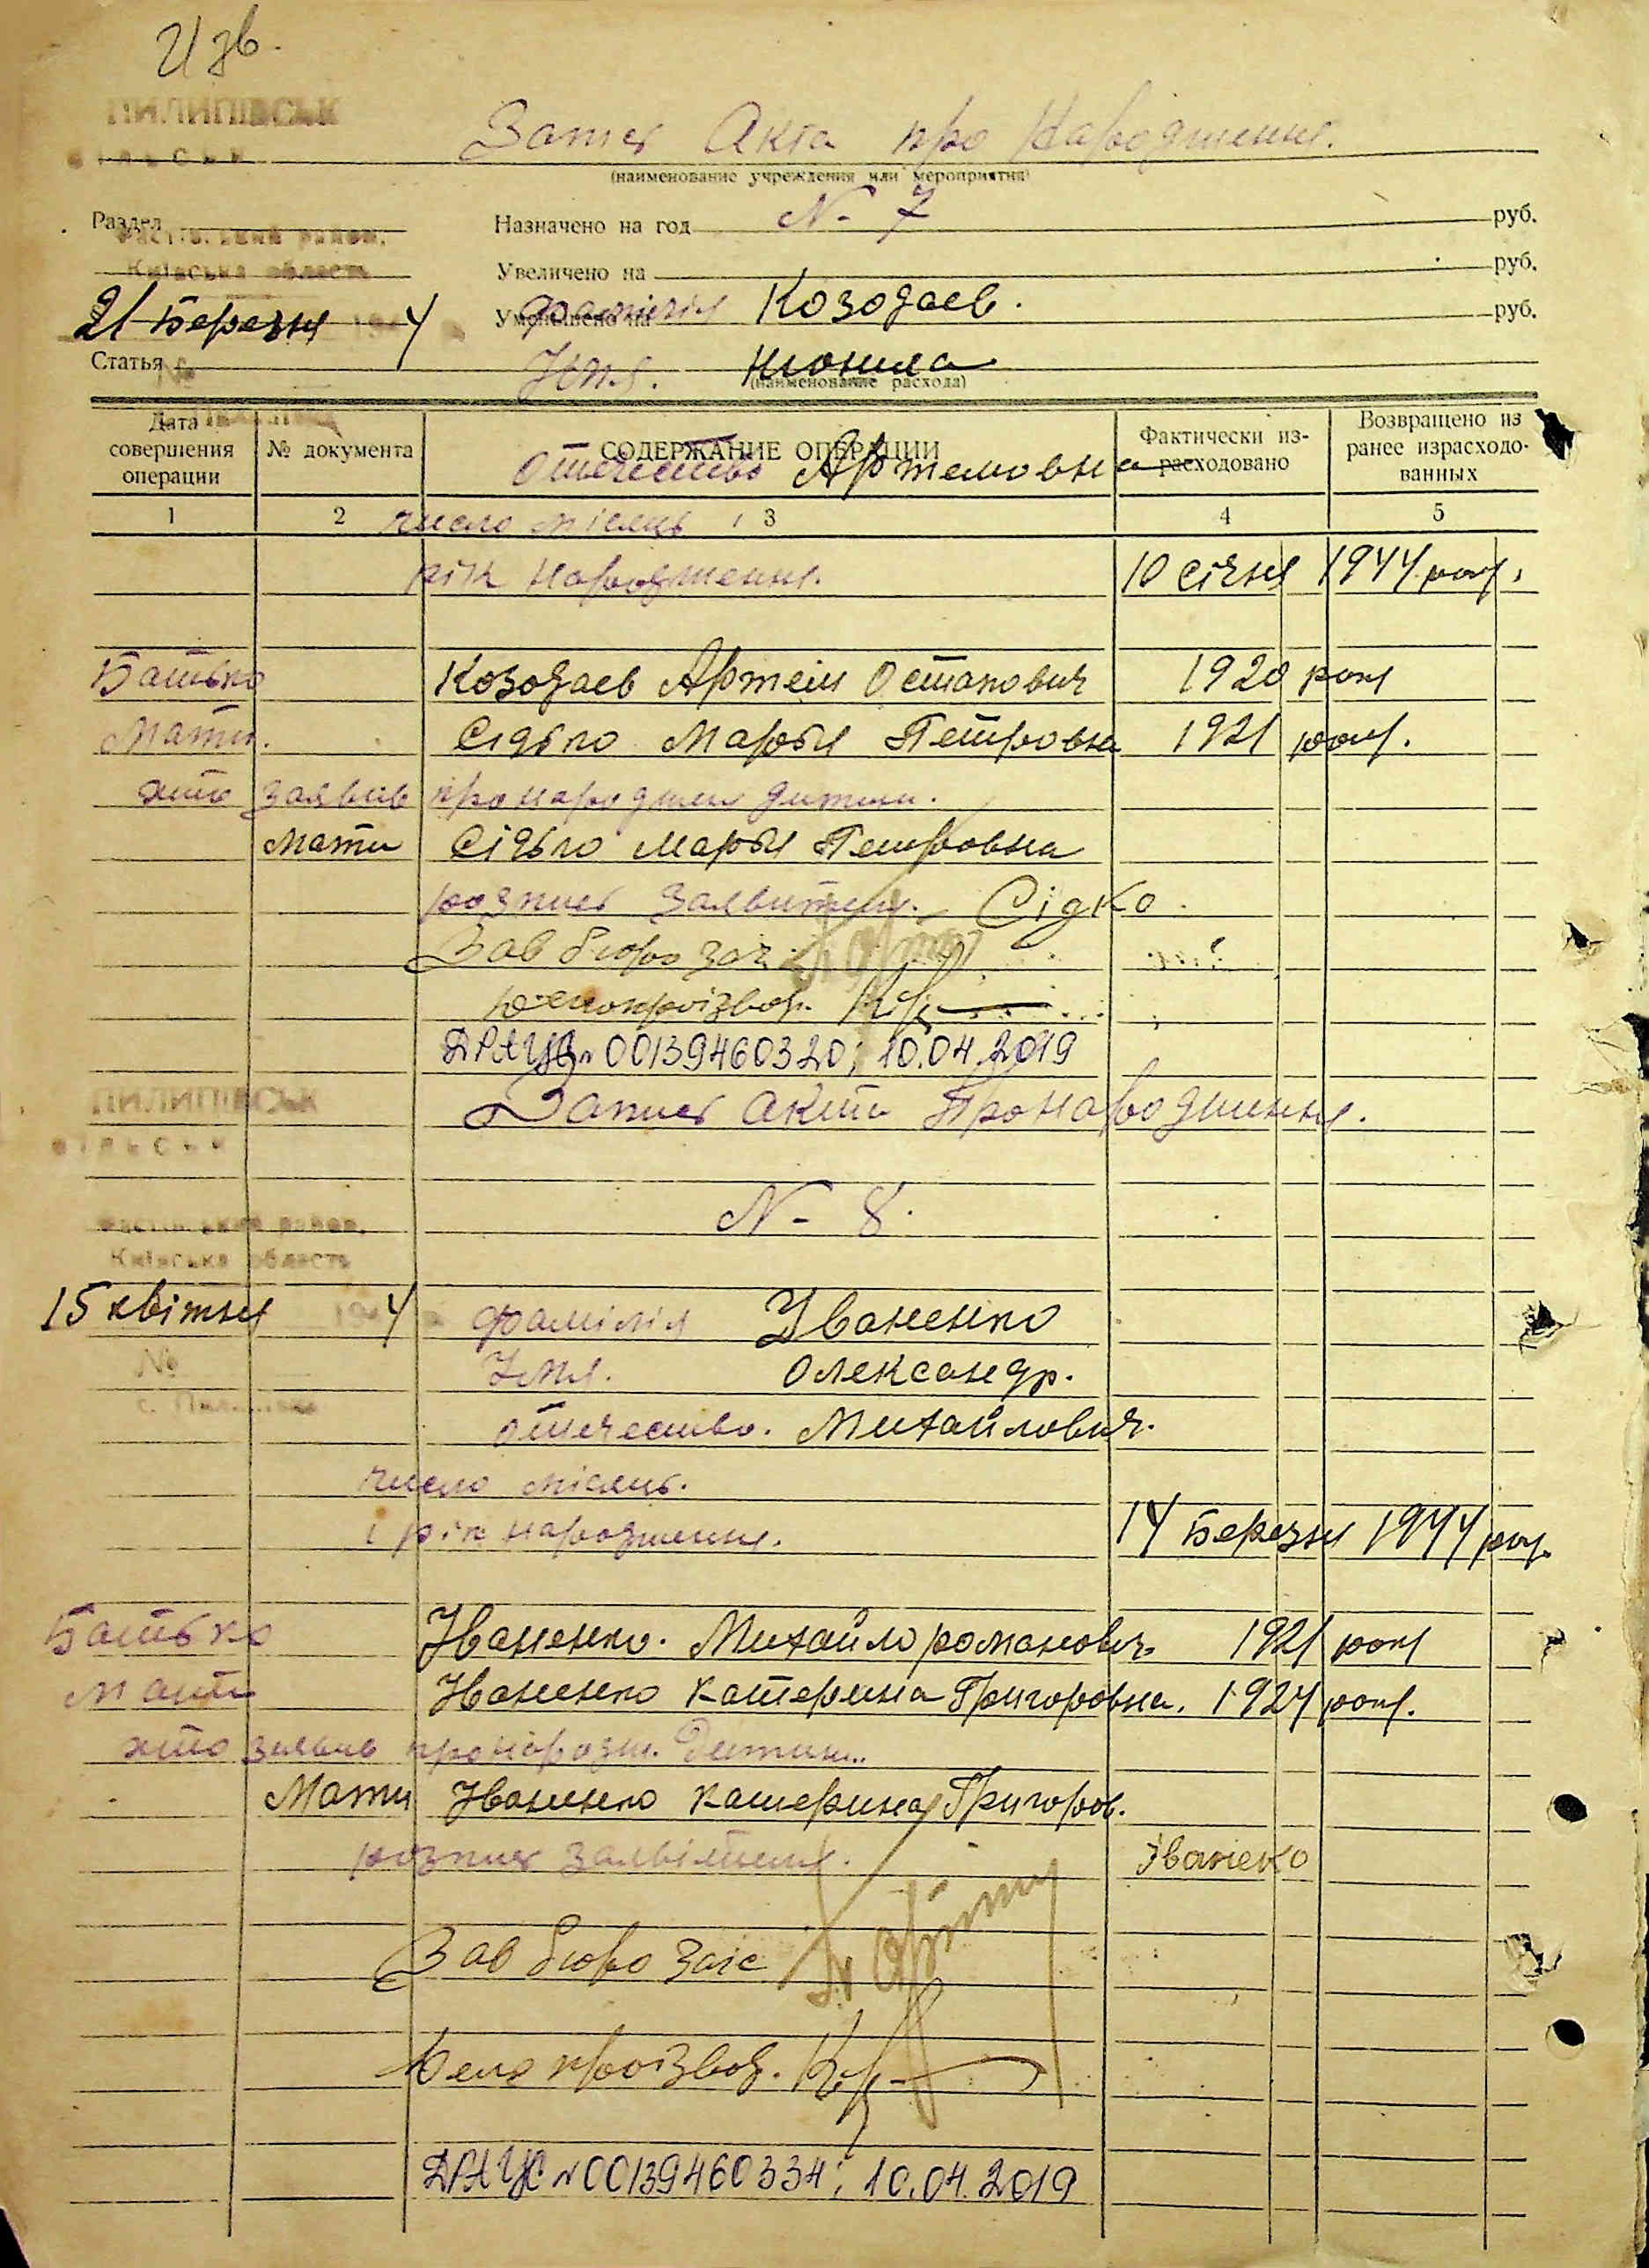 ПИЛИПІВСЬК
Запис Акта про Народження.
(наименование учреждения или мероприятия)
Раздел
Назначено на год № 7 руб.
район.
Київська область
Увеличено на руб.
21 Березня 4
Уменьшено на руб.
фамілія Козодаев.
Статья
№
Імя. Нюнила
(наименование расхода)
Дата совершения операции
№ документа
СОДЕРЖАНИЕ ОПЕРАЦИИ
Фактически из-расходовано
Возвращено из ранее израсходо-ванных
отечество Артемовна
1 2 3 4 5
число місяць і
рік народження. 10 січня 1944 року.
Батько Козодаев Артем Остапович 1920 року
Мати. Сідько Марья Петровна 1921 року.
хто заявив про народжен дитини.
Мати Сідько Марья Петровна
розпис заявителя. Сідко.
Зав бюро заг
Делопроізвод.
ДРАЦС № 00139460320; 10.04.2019
ПИЛИПІВСЬК
Запис акта Про народження.
№ 8.
район.
Київська область
15 квітня 4 фамілія Іваненко
№ Імя. Олександр.
с.
отечество. Михайлович.
число місяць.
і рік народження. 14 Березня 1944 рок.
Батько Іваненко. Михайло романович 1921 року
Мати Іваненко Катерина Григоровна. 1924 року.
хто заявив про народж. Дитини.
Мати Іваненко Катерина Григоров.
розпис заявітеля. Іванеко
Зав бюро загс
Делопроізвод.
ДРАЦС № 00139460334; 10.04.2019